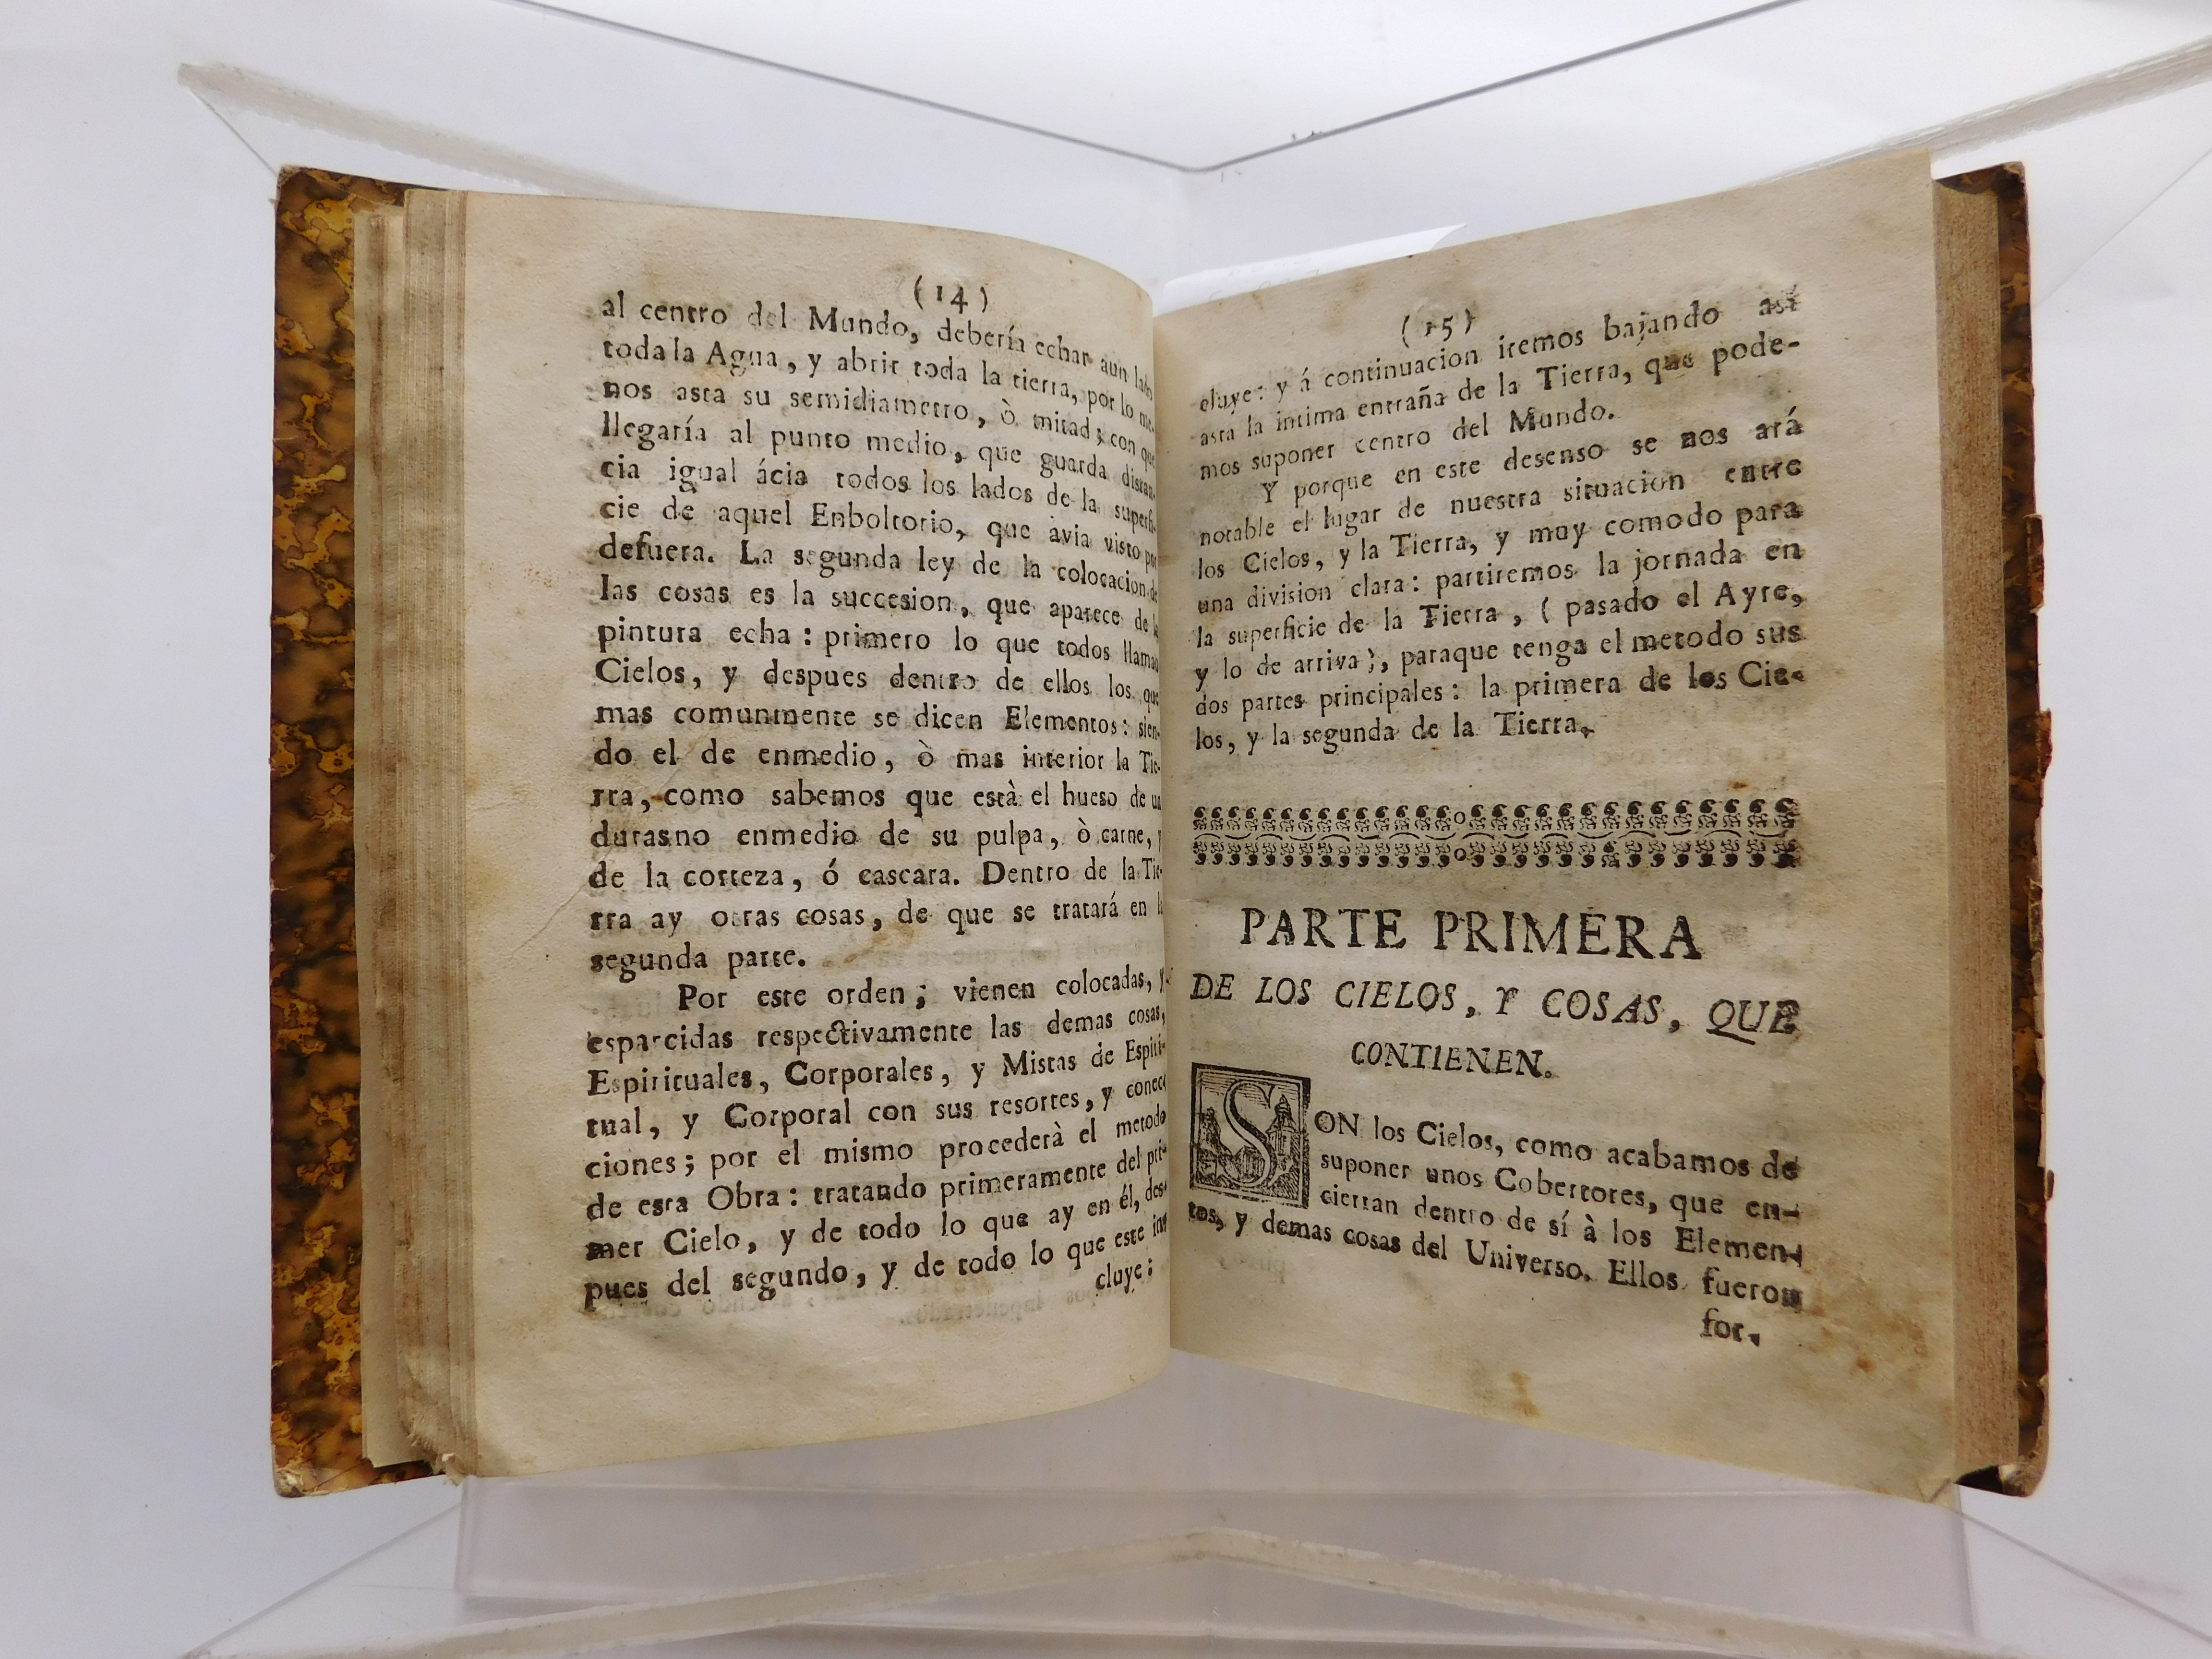 (14)
al centro del Mundo, debería echar aun lado
toda la Agua, y abrir toda la tierra, por lo me-
nos asta su semidiametro, ò mitad; con que
llegaría al punto medio, que guarda distan-
cia igual ácia todos los lados de la superfi-
cie de aquel Enboltorio, que avia visto por
defuera. La segunda ley de la colocacion de
las cosas es la succesion, que aparece de la
pintura echa: primero lo que todos llaman
Cielos, y despues dentro de ellos los que
mas comunmente se dicen Elementos: sien-
do el de enmedio, ò mas interior la Tie-
rra, como sabemos que està el hueso de un
durasno enmedio de su pulpa, ò carne, y
de la corteza, ó cascara. Dentro de la Tie-
rra ay otras cosas, de que se tratará en la
segunda parte.
Por este orden; vienen colocadas, y
esparcidas respectivamente las demas cosas,
Espirituales, Corporales, y Mistas de Espiri-
tual, y Corporal con sus resortes, y conec-
ciones; por el mismo procederà el metodo
de esta Obra: tratando primeramente del pri-
mer Cielo, y de todo lo que ay en él, des-
pues del segundo, y de todo lo que este in-
cluye:
(15)
cluye: y á continuacion iremos bajando así
asta la intima entraña de la Tierra, que pode-
mos suponer centro del Mundo.
Y porque en este desenso se nos ará
notable el lugar de nuestra situacion entre
los Cielos, y la Tierra, y muy comodo para
una division clara: partiremos la jornada en
la superficie de la Tierra, ( pasado el Ayre,
y lo de arriva), paraque tenga el metodo sus
dos partes principales: la primera de los Cie-
los, y la segunda de la Tierra.
PARTE PRIMERA
DE LOS CIELOS, Y COSAS, QUE
CONTIENEN.
SON los Cielos, como acabamos de
suponer unos Cobertores, que en-
cierran dentro de sí à los Elemen-
tos, y demas cosas del Universo. Ellos fueron
for-